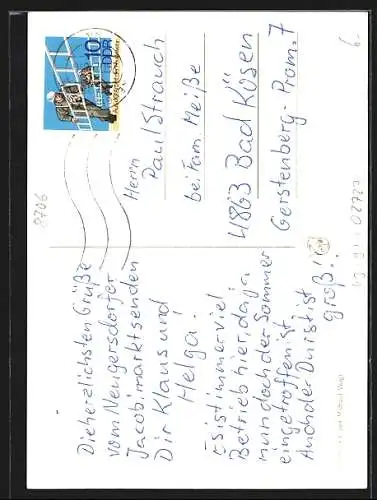 Die herzlichsten Grüße
vom Neugersdorfer
Jacobimarkt senden
Dir Klaus und
Helga!
Es ist immer viel
Betrieb hier, da ja
nun doch der Sommer
eingetroffen ist.
Auch der Durst ist
groß!
10
DDR
Herrn
Paul Strauch
bei Fam. Meiße
4863 Bad Kösen
Gerstenberg-Prom. 7
8706
6.-